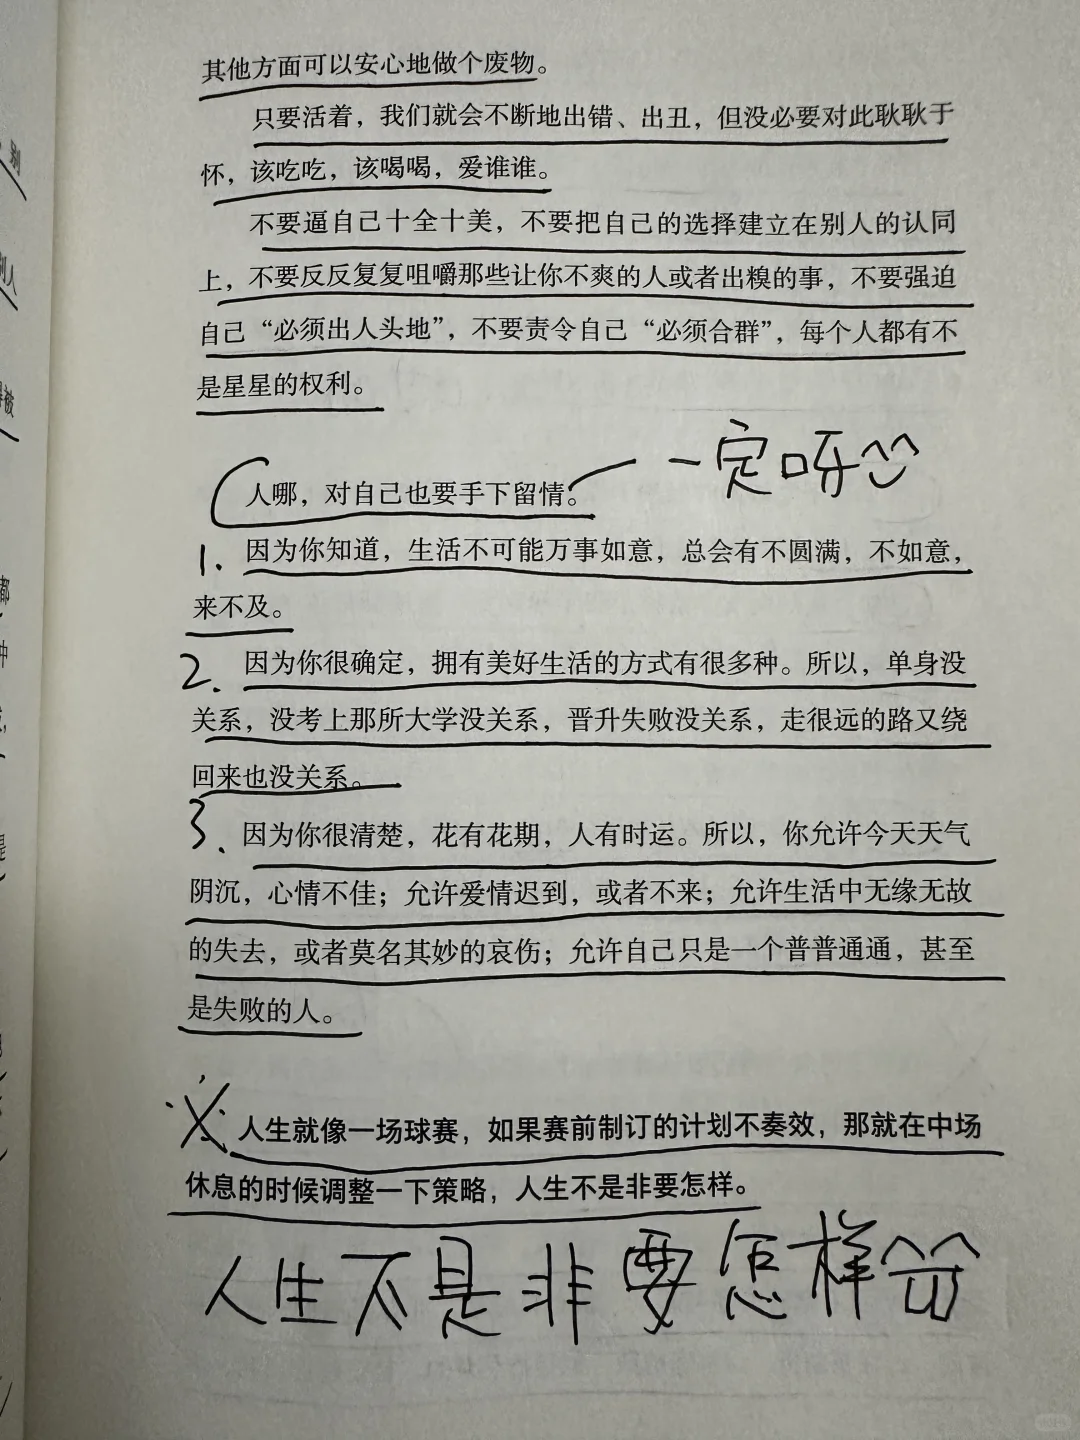 其他方面可以安心地做个废物。
只要活着，我们就会不断地出错、出丑，但没必要对此耿耿于
怀，该吃吃，该喝喝，爱谁谁。
不要逼自己十全十美，不要把自己的选择建立在别人的认同
上，不要反反复复咀嚼那些让你不爽的人或者出糗的事，不要强迫
自己“必须出人头地”，不要责令自己“必须合群”，每个人都有不
是星星的权利。
一定呀
人哪，对自己也要手下留情。
1. 因为你知道，生活不可能万事如意，总会有不圆满，不如意，
来不及。
2. 因为你很确定，拥有美好生活的方式有很多种。所以，单身没
关系，没考上那所大学没关系，晋升失败没关系，走很远的路又绕
回来也没关系。
3、因为你很清楚，花有花期，人有时运。所以，你允许今天天气
阴沉，心情不佳；允许爱情迟到，或者不来；允许生活中无缘无故
的失去，或者莫名其妙的哀伤；允许自己只是一个普普通通，甚至
是失败的人。
人生就像一场球赛，如果赛前制订的计划不奏效，那就在中场
休息的时候调整一下策略，人生不是非要怎样。
人生不是非要怎样
别
别人
被
都